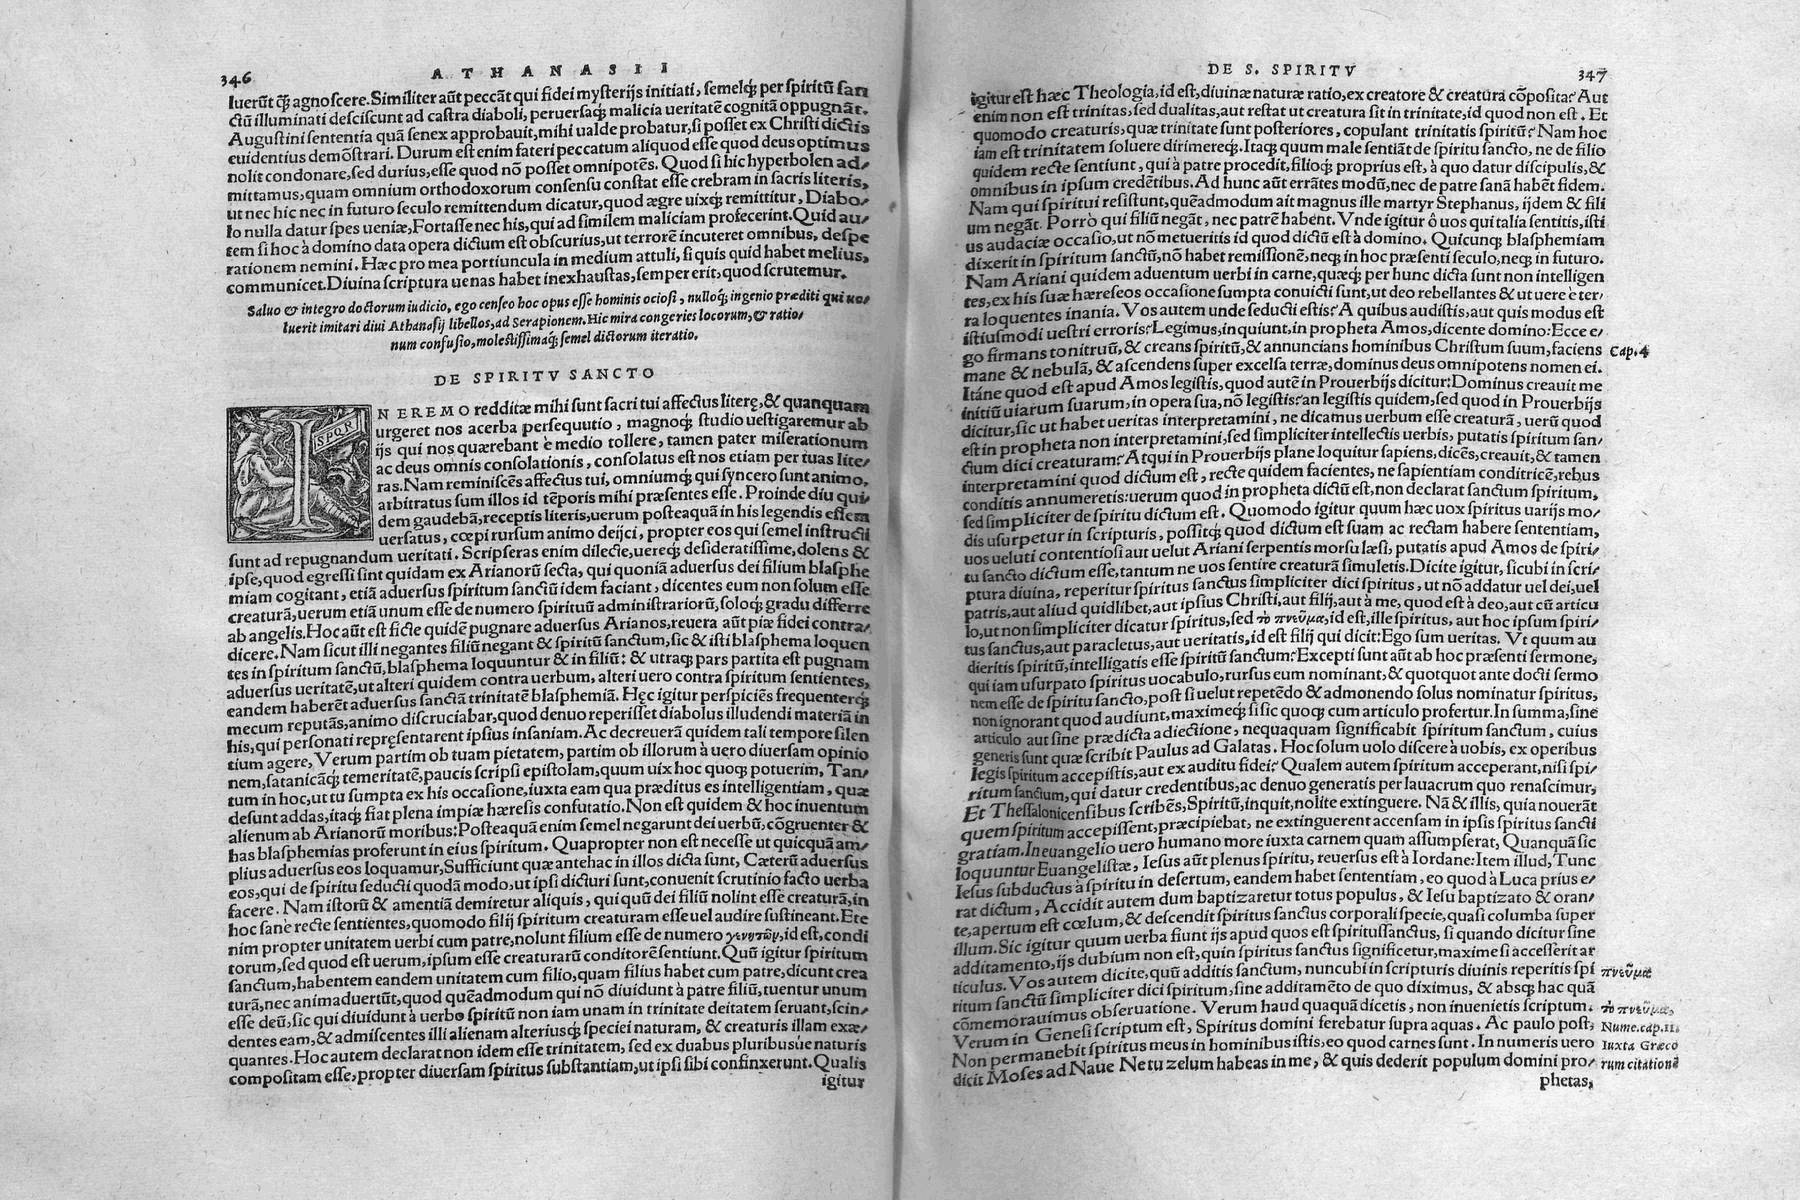 346
ATHANASII
luerũt q̃ agnoscere. Similiter aũt peccãt qui fidei mysterijs initiati, semelq; per spiritũ san
ctũ illuminati desciscunt ad castra diaboli, peruersaq; malicia ueritatẽ cognitã oppugnãt.
Augustini sententia quã senex approbauit, mihi ualde probatur, si posset ex Christi dictis
euidentius demõstrari. Durum est enim fateri peccatum aliquod esse quod deus optimus
nolit condonare, sed durius, esse quod nõ posset omnipotẽs. Quod si hic hyperbolen ad/
mittamus, quam omnium orthodoxorum consensu constat esse crebram in sacris literis,
ut nec hic nec in futuro seculo remittendum dicatur, quod ægre uixq; remittitur, Diabo/
lo nulla datur spes ueniæ, Fortasse nec his, qui ad similem maliciam profecerint. Quid au/
tem si hoc à domino data opera dictum est obscurius, ut terrorẽ incuteret omnibus, despe
rationem nemini. Hæc pro mea portiuncula in medium attuli, si quis quid habet melius,
communicet. Diuina scriptura uenas habet inexhaustas, semper erit, quod scrutemur.
Saluo & integro doctorum iudicio, ego censeo hoc opus esse hominis ociosi, nulloq; ingenio præditi qui uo/
luerit imitari diui Athanasij libellos, ad Serapionem. Hic mira congeries locorum, & ratio/
num confusio, molestissimaq; semel dictorum iteratio.
DE SPIRITV SANCTO
IN EREMO redditæ mihi sunt sacri tui affectus literę, & quanquam
urgeret nos acerba persequutio, magnoq; studio uestigaremur ab
ijs qui nos quærebant è medio tollere, tamen pater miserationum
ac deus omnis consolationis, consolatus est nos etiam per tuas lite/
ras. Nam reminiscẽs affectus tui, omniumq; qui syncero sunt animo,
arbitratus sum illos id tẽporis mihi præsentes esse. Proinde diu qui/
dem gaudebã, receptis literis, uerum posteaquã in his legendis essem
uersatus, cœpi rursum animo deijci, propter eos qui semel instructi
sunt ad repugnandum ueritati. Scripseras enim dilecte, uereq; desideratissime, dolens &
ipse, quod egressi sint quidam ex Arianorũ secta, qui quoniã aduersus dei filium blasphe
miam cogitant, etiã aduersus spiritum sanctũ idem faciant, dicentes eum non solum esse
creaturã, uerum etiã unum esse de numero spirituũ administrariorũ, soloq; gradu differre
ab angelis. Hoc aũt est ficte quidẽ pugnare aduersus Arianos, reuera aũt piæ fidei contra/
dicere. Nam sicut illi negantes filiũ negant & spiritũ sanctum, sic & isti blasphema loquen
tes in spiritum sanctũ, blasphema loquuntur & in filiũ: & utraq; pars partita est pugnam
aduersus ueritatẽ, ut alteri quidem contra uerbum, alteri uero contra spiritum sentientes,
eandem haberẽt aduersus sanctã trinitatẽ blasphemiã. Hęc igitur perspiciẽs frequenterq;
mecum reputãs, animo discruciabar, quod denuo reperisset diabolus illudendi materiã in
his, qui personati repręsentarent ipsius insaniam. Ac decreuerã quidem tali tempore silen
tium agere, Verum partim ob tuam pietatem, partim ob illorum à uero diuersam opinio
nem, satanicãq; temeritatẽ, paucis scripsi epistolam, quum uix hoc quoq; potuerim, Tan/
tum in hoc, ut tu sumpta ex his occasione, iuxta eam qua præditus es intelligentiam, quæ
desunt addas, itaq; fiat plena impiæ hæresis confutatio. Non est quidem & hoc inuentum
alienum ab Arianorũ moribus: Posteaquã enim semel negarunt dei uerbũ, cõgruenter &
has blasphemias proferunt in eius spiritum. Quapropter non est necesse ut quicquã am/
plius aduersus eos loquamur, Sufficiunt quæ antehac in illos dicta sunt, Cæterũ aduersus
eos, qui de spiritu seducti quodã modo, ut ipsi dicturi sunt, conuenit scrutinio facto uerba
facere. Nam istorũ & amentiã demiretur aliquis, qui quũ dei filiũ nolint esse creaturã, in
hoc sanè recte sentientes, quomodo filij spiritum creaturam esse uel audire sustineant. Ete
nim propter unitatem uerbi cum patre, nolunt filium esse de numero γενητῶν, id est, condi
torum, sed quod est uerum, ipsum esse creaturarũ conditorẽ sentiunt. Quũ igitur spiritum
sanctum, habentem eandem unitatem cum filio, quam filius habet cum patre, dicunt crea
turã, nec animaduertũt, quod quẽadmodum qui nõ diuidunt à patre filiũ, tuentur unum
esse deũ, sic qui diuidunt à uerbo spiritum non iam unam in trinitate deitatem seruant, scin/
dentes eam, & admiscentes illi alienam alteriusq; speciei naturam, & creaturis illam exæ/
quantes. Hoc autem declarat non idem esse trinitatem, sed ex duabus pluribusue naturis
compositam esse, propter diuersam spiritus substantiam, ut ipsi sibi confinxerunt. Qualis
igitur
DE S. SPIRITV
347
igitur est hæc Theologia, id est, diuinæ naturæ ratio, ex creatore & creatura cõposita? Aut
enim non est trinitas, sed dualitas, aut restat ut creatura sit in trinitate, id quod non est. Et
quomodo creaturis, quæ trinitate sunt posteriores, copulant trinitatis spiritũ? Nam hoc
iam est trinitatem soluere dirimereq;. Itaq; quum male sentiãt de spiritu sancto, ne de filio
quidem recte sentiunt, qui à patre procedit, filioq; proprius est, à quo datur discipulis, &
omnibus in ipsum credẽtibus. Ad hunc aũt errãtes modũ, nec de patre sanã habẽt fidem.
Nam qui spiritui resistunt, quẽadmodum ait magnus ille martyr Stephanus, ijdem & fili
um negãt. Porrò qui filiũ negãt, nec patrẽ habent. Vnde igitur ô uos qui talia sentitis, isti
us audaciæ occasio, ut nõ metueritis id quod dictũ est à domino. Quicunq; blasphemiam
dixerit in spiritum sanctũ, nõ habet remissionẽ, neq; in hoc præsenti seculo, neq; in futuro.
Nam Ariani quidem aduentum uerbi in carne, quæq; per hunc dicta sunt non intelligen
tes, ex his suæ hæreseos occasione sumpta conuicti sunt, ut deo rebellantes & ut uere è ter/
ra loquentes inania. Vos autem unde seducti estis? A quibus audistis, aut quis modus est
istiusmodi uestri erroris? Legimus, inquiunt, in propheta Amos, dicente domino: Ecce e/
go firmans tonitruũ, & creans spiritũ, & annuncians hominibus Christum suum, faciens
Cap. 4
mane & nebulã, & ascendens super excelsa terræ, dominus deus omnipotens nomen ei.
Itáne quod est apud Amos legistis, quod autẽ in Prouerbijs dicitur: Dominus creauit me
initiũ uiarum suarum, in opera sua, nõ legistis? an legistis quidem, sed quod in Prouerbijs
dicitur, sic ut habet ueritas interpretamini, ne dicamus uerbum esse creaturã, uerũ quod
est in propheta non interpretamini, sed simpliciter intellectis uerbis, putatis spiritum san/
ctum dici creaturam? Atqui in Prouerbijs plane loquitur sapiens, dicẽs, creauit, & tamen
interpretamini quod dictum est, recte quidem facientes, ne sapientiam conditricẽ, rebus
conditis annumeretis: uerum quod in propheta dictũ est, non declarat sanctum spiritum,
sed simpliciter de spiritu dictum est. Quomodo igitur quum hæc uox spiritus uarijs mo/
dis usurpetur in scripturis, possitq; quod dictum est suam ac rectam habere sententiam,
uos ueluti contentiosi aut uelut Ariani serpentis morsu læsi, putatis apud Amos de spiri/
tu sancto dictum esse, tantum ne uos sentire creaturã simuletis. Dicite igitur, sicubi in scri/
ptura diuina, reperitur spiritus sanctus simpliciter dici spiritus, ut nõ addatur uel dei, uel
patris, aut aliud quidlibet, aut ipsius Christi, aut filij, aut à me, quod est à deo, aut cũ articu
lo, ut non simpliciter dicatur spiritus, sed τὸ πνεῦμα, id est, ille spiritus, aut hoc ipsum spiri/
tus sanctus, aut paracletus, aut ueritatis, id est filij qui dicit: Ego sum ueritas. Vt quum au
dieritis spiritũ, intelligatis esse spiritũ sanctum? Excepti sunt aũt ab hoc præsenti sermone,
qui iam usurpato spiritus uocabulo, rursus eum nominant, & quotquot ante docti sermo
nem esse de spiritu sancto, post si uelut repetẽdo & admonendo solus nominatur spiritus,
non ignorant quod audiunt, maximeq; si sic quoq; cum articulo profertur. In summa, sine
articulo aut sine prædicta adiectione, nequaquam significabit spiritum sanctum, cuius
generis sunt quæ scribit Paulus ad Galatas. Hoc solum uolo discere à uobis, ex operibus
legis spiritum accepistis, aut ex auditu fidei? Qualem autem spiritum acceperant, nisi spi/
ritum sanctum, qui datur credentibus, ac denuo generatis per lauacrum quo renascimur,
Et Thessalonicensibus scribẽs, Spiritũ, inquit, nolite extinguere. Nã & illis, quia nouerãt
quem spiritum accepissent, præcipiebat, ne extinguerent accensam in ipsis spiritus sancti
gratiam. In euangelio uero humano more iuxta carnem quam assumpserat, Quanquã sic
loquuntur Euangelistæ, Iesus aũt plenus spiritu, reuersus est à Iordane: Item illud, Tunc
Iesus subductus à spiritu in desertum, eandem habet sententiam, eo quod à Luca prius e/
rat dictum, Accidit autem dum baptizaretur totus populus, & Iesu baptizato & oran/
te, apertum est cœlum, & descendit spiritus sanctus corporali specie, quasi columba super
illum. Sic igitur quum uerba fiunt ijs apud quos est spiritussanctus, si quando dicitur sine
additamento, ijs dubium non est, quin spiritus sanctus significetur, maxime si accesserit ar
ticulus. Vos autem dicite, quũ additis sanctum, nuncubi in scripturis diuinis reperitis spi
πνεῦμα
ritum sanctũ simpliciter dici spiritum, sine additamẽto de quo diximus, & absq; hac quã
cõmemorauimus obseruatione. Verum haud quaquã dicetis, non inuenietis scriptum.
τὸ πνεῦμα,
Verum in Genesi scriptum est, Spiritus domini ferebatur supra aquas. Ac paulo post,
Nume. cap. 11.
Non permanebit spiritus meus in hominibus istis, eo quod carnes sunt. In numeris uero
Iuxta Græco
dicit Moses ad Naue Ne tu zelum habeas in me, & quis dederit populum domini pro/
rum citationẽ
phetas,